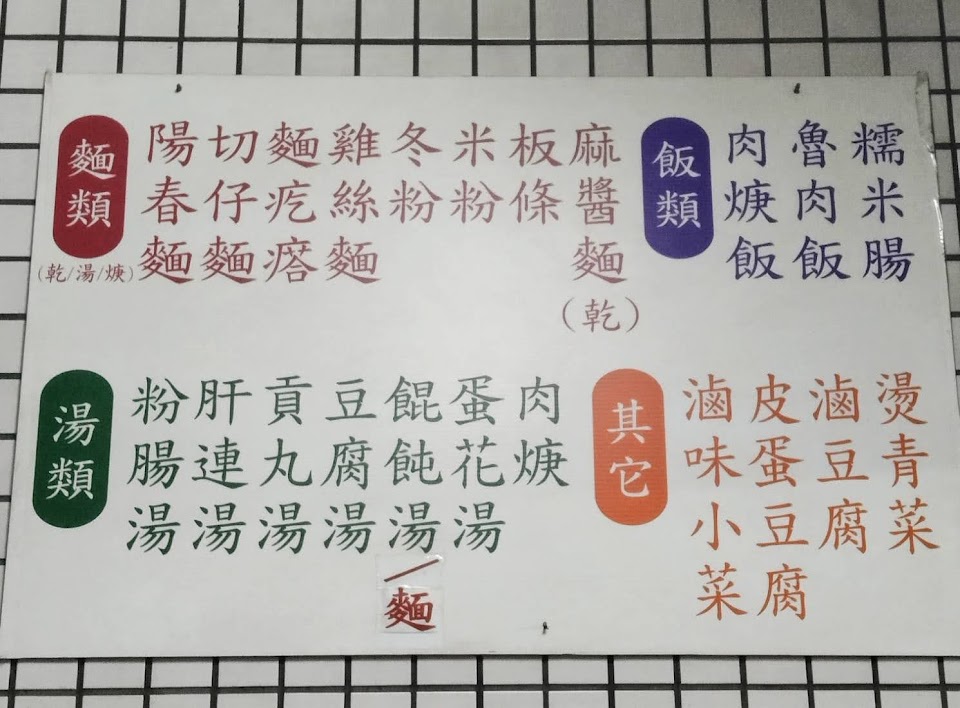 麵類
(乾/湯/焿)
陽春麵
切仔麵
麵疙瘩
雞絲麵
冬粉
米粉
板條
麻醬麵
(乾)
飯類
肉焿飯
魯肉飯
糯米腸
湯類
粉腸湯
肝連湯
貢丸湯
豆腐湯
餛飩湯
/麵
蛋花湯
肉焿
其它
滷味小菜
皮蛋豆腐
滷豆腐
燙青菜